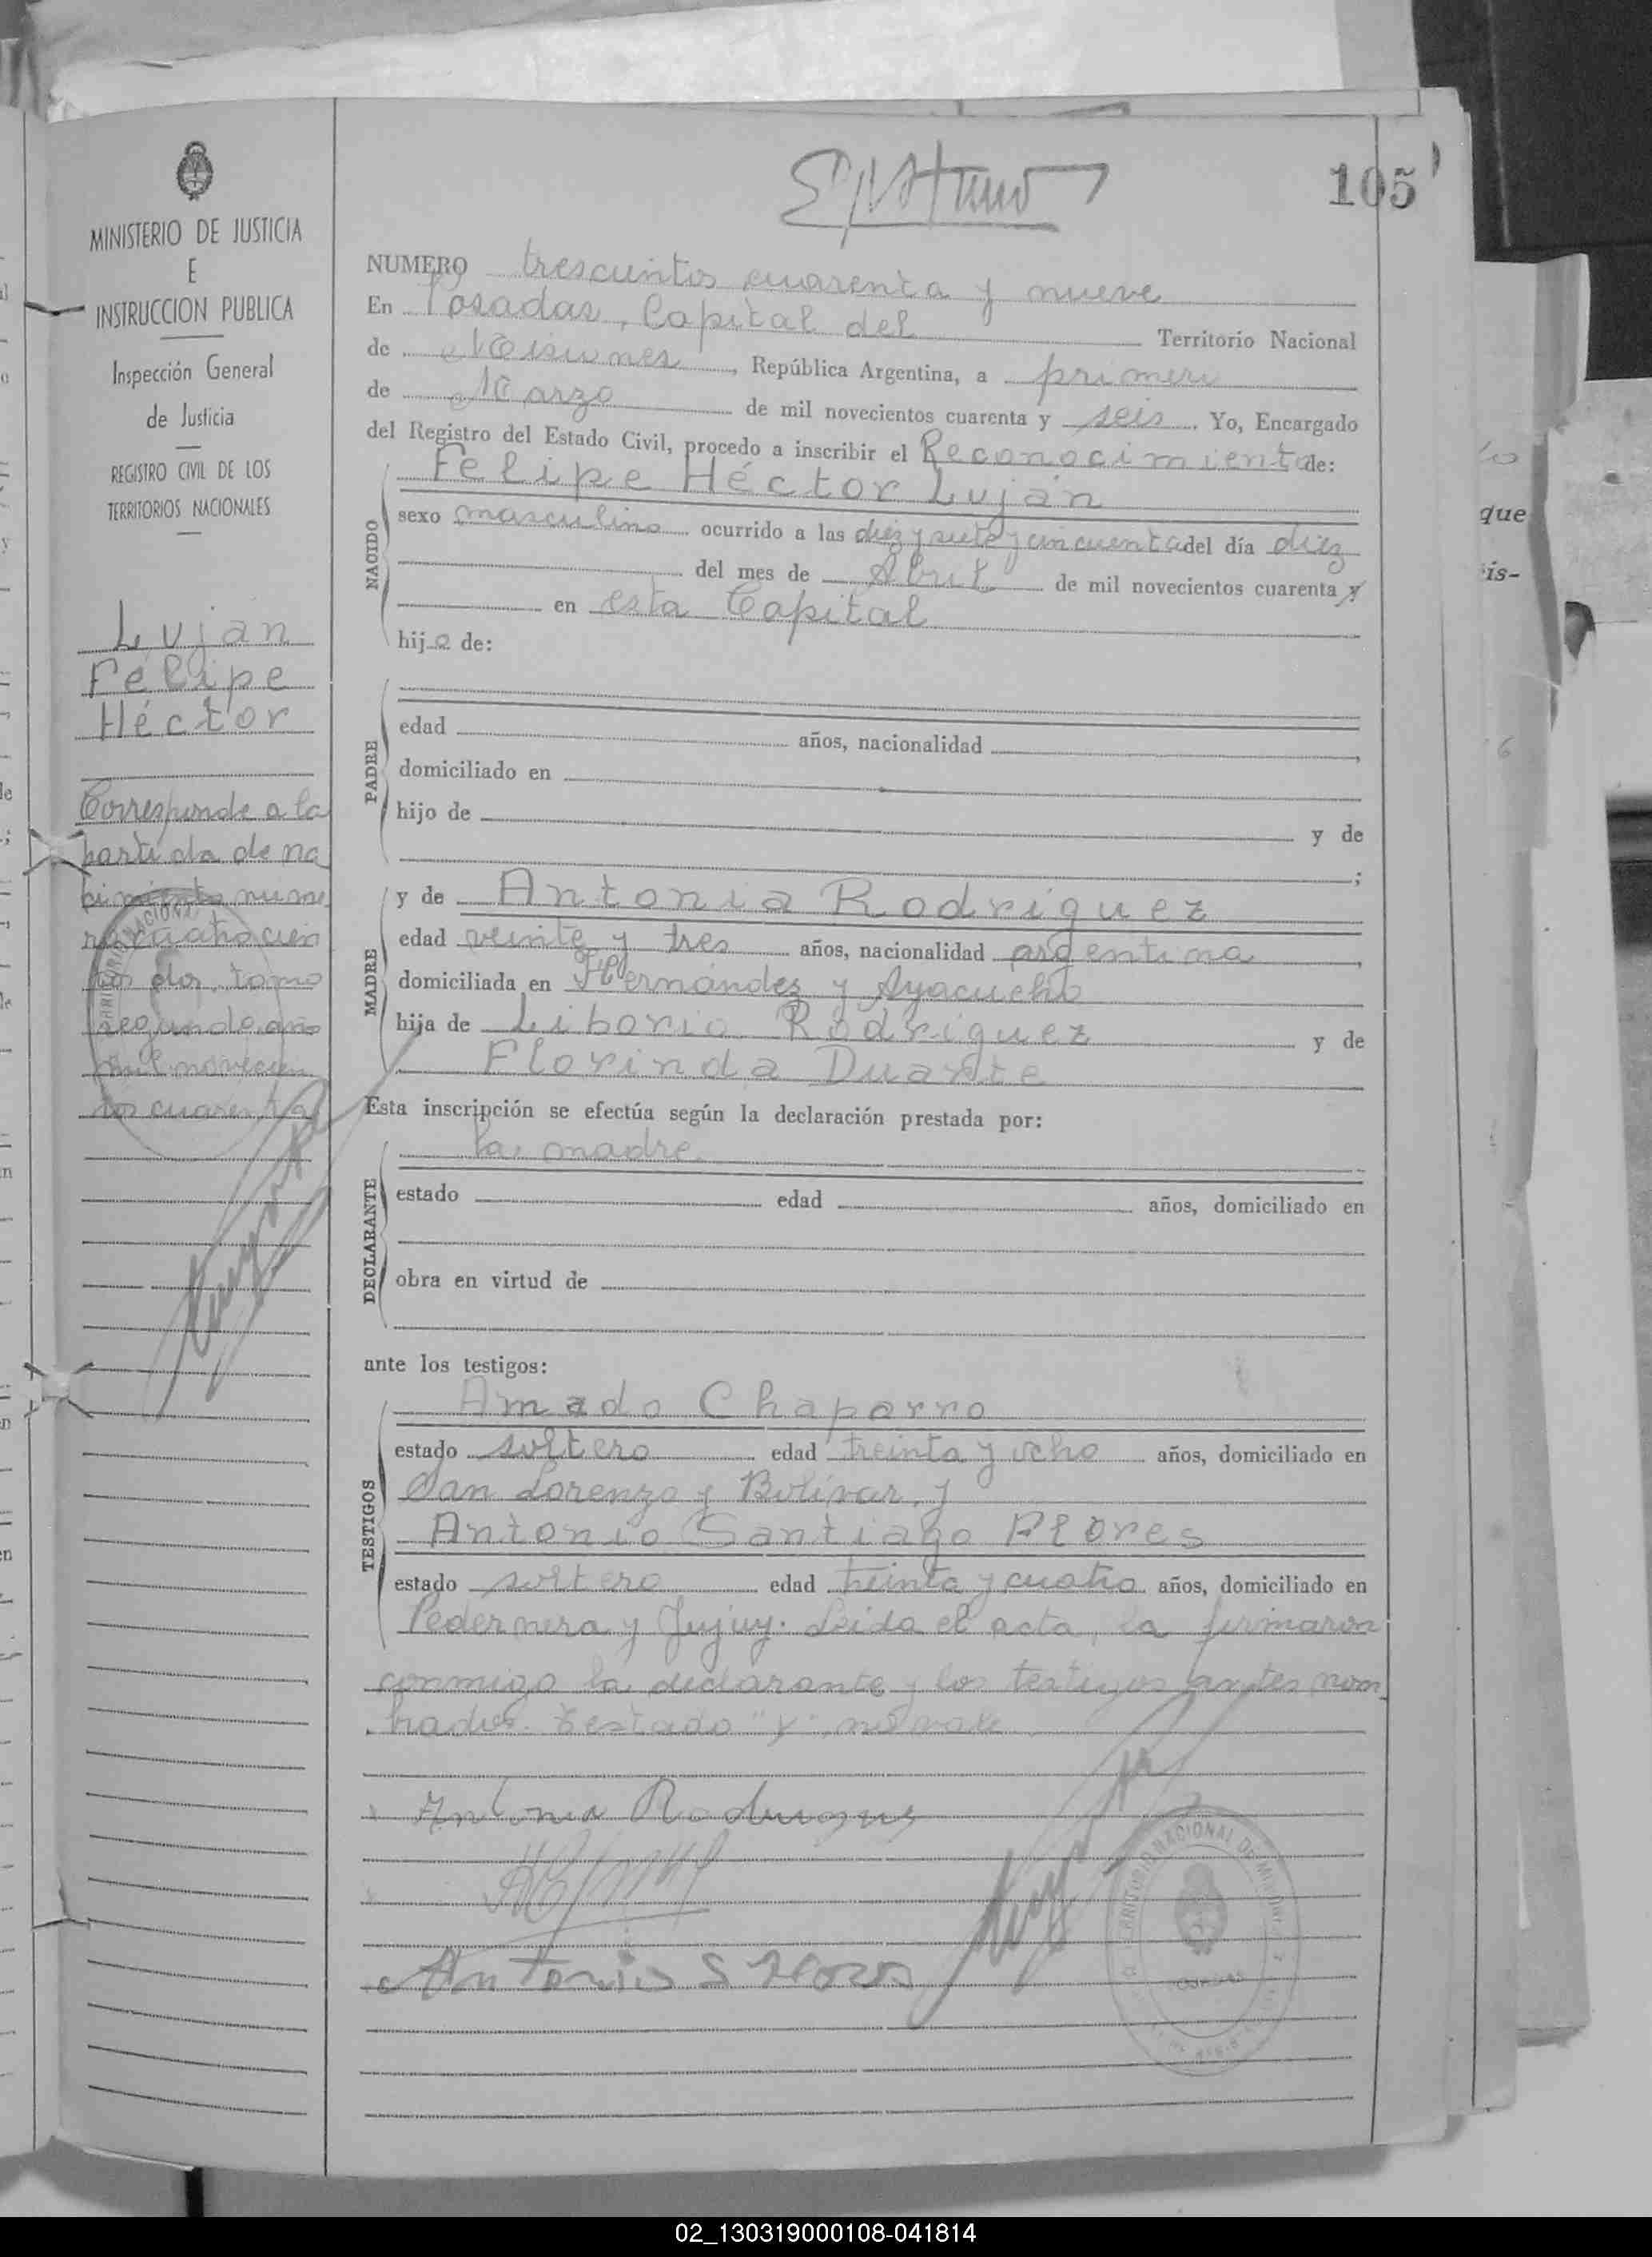 105
MINISTERIO DE JUSTICIA
E
INSTRUCCION PUBLICA
Inspección General
de Justicia
REGISTRO CIVIL DE LOS
TERRITORIOS NACIONALES
Luján
Felipe
Héctor
Corresponde a la
partida de na
cimiento núme
ro cuatrocien
tos dos, tomo
segundo año
mil novecien
tos cuarenta
NUMERO trescientos cuarenta y nueve
En Posadas, Capital del Territorio Nacional
de Misiones, República Argentina, a primero
de Marzo de mil novecientos cuarenta y seis. Yo, Encargado
del Registro del Estado Civil, procedo a inscribir el Reconocimiento de:
NACIDO
Felipe Héctor Luján
sexo masculino ocurrido a las diez y siete y cincuenta del día diez
del mes de Abril de mil novecientos cuarenta y
en esta Capital
hijo de:
PADRE
edad años, nacionalidad ,
domiciliado en
hijo de y de
;
MADRE
y de Antonia Rodríguez
edad veinte y tres años, nacionalidad argentina,
domiciliada en Hernández y Ayacucho
hija de Liborio Rodríguez y de
Florinda Duarte
Esta inscripción se efectúa según la declaración prestada por:
DECLARANTE
la madre
estado edad años, domiciliado en
obra en virtud de
ante los testigos:
TESTIGOS
Amado Chaparro
estado soltero edad treinta y ocho años, domiciliado en
San Lorenzo y Bolívar, y
Antonio Santiago Flores
estado soltero edad treinta y cuatro años, domiciliado en
Pedernera y Jujuy. Leída el acta, la firmaron
conmigo la declarante y los testigos antes nom
brados. Testado "y", no vale
Antonia Rodrigues
Antonio S Flores
que
is-
02_130319000108-041814